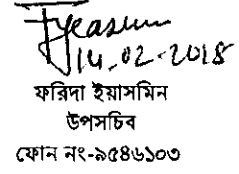 14.02.2018
ফরিদা ইয়াসমিন
উপসচিব
ফোন নং-৯৫৪৬১০৩